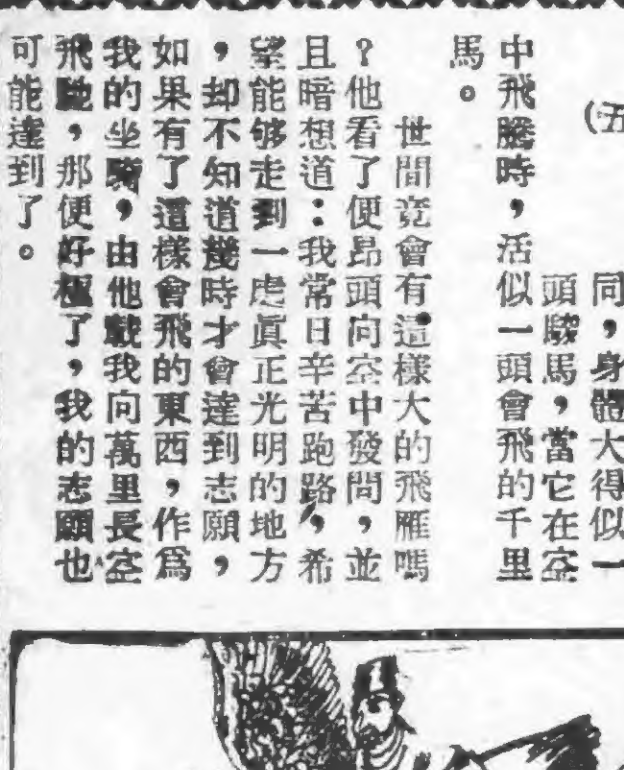 (五
同，身體大得似一
頭駿馬，當它在空
中飛騰時，活似一頭會飛的千里
馬。
世間竟會有這樣大的飛雁嗎
？他看了便昂頭向空中發問，並
且暗想道：我常日辛苦跑路，希
望能够走到一處眞正光明的地方
，却不知道幾時才會達到志願，
如果有了這樣會飛的東西，作爲
我的坐騎，由他載我向萬里長空
飛馳，那便好極了，我的志願也
可能達到了。